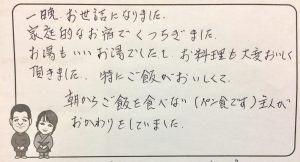 一晩、お世話になりました。
家庭的なお宿でくつろぎました。
お湯もいいお湯でしたし、お料理も大変おいしく
頂きました。特にご飯がおいしくて、
朝からご飯を食べない(パン食です)主人が
おかわりをしていました。